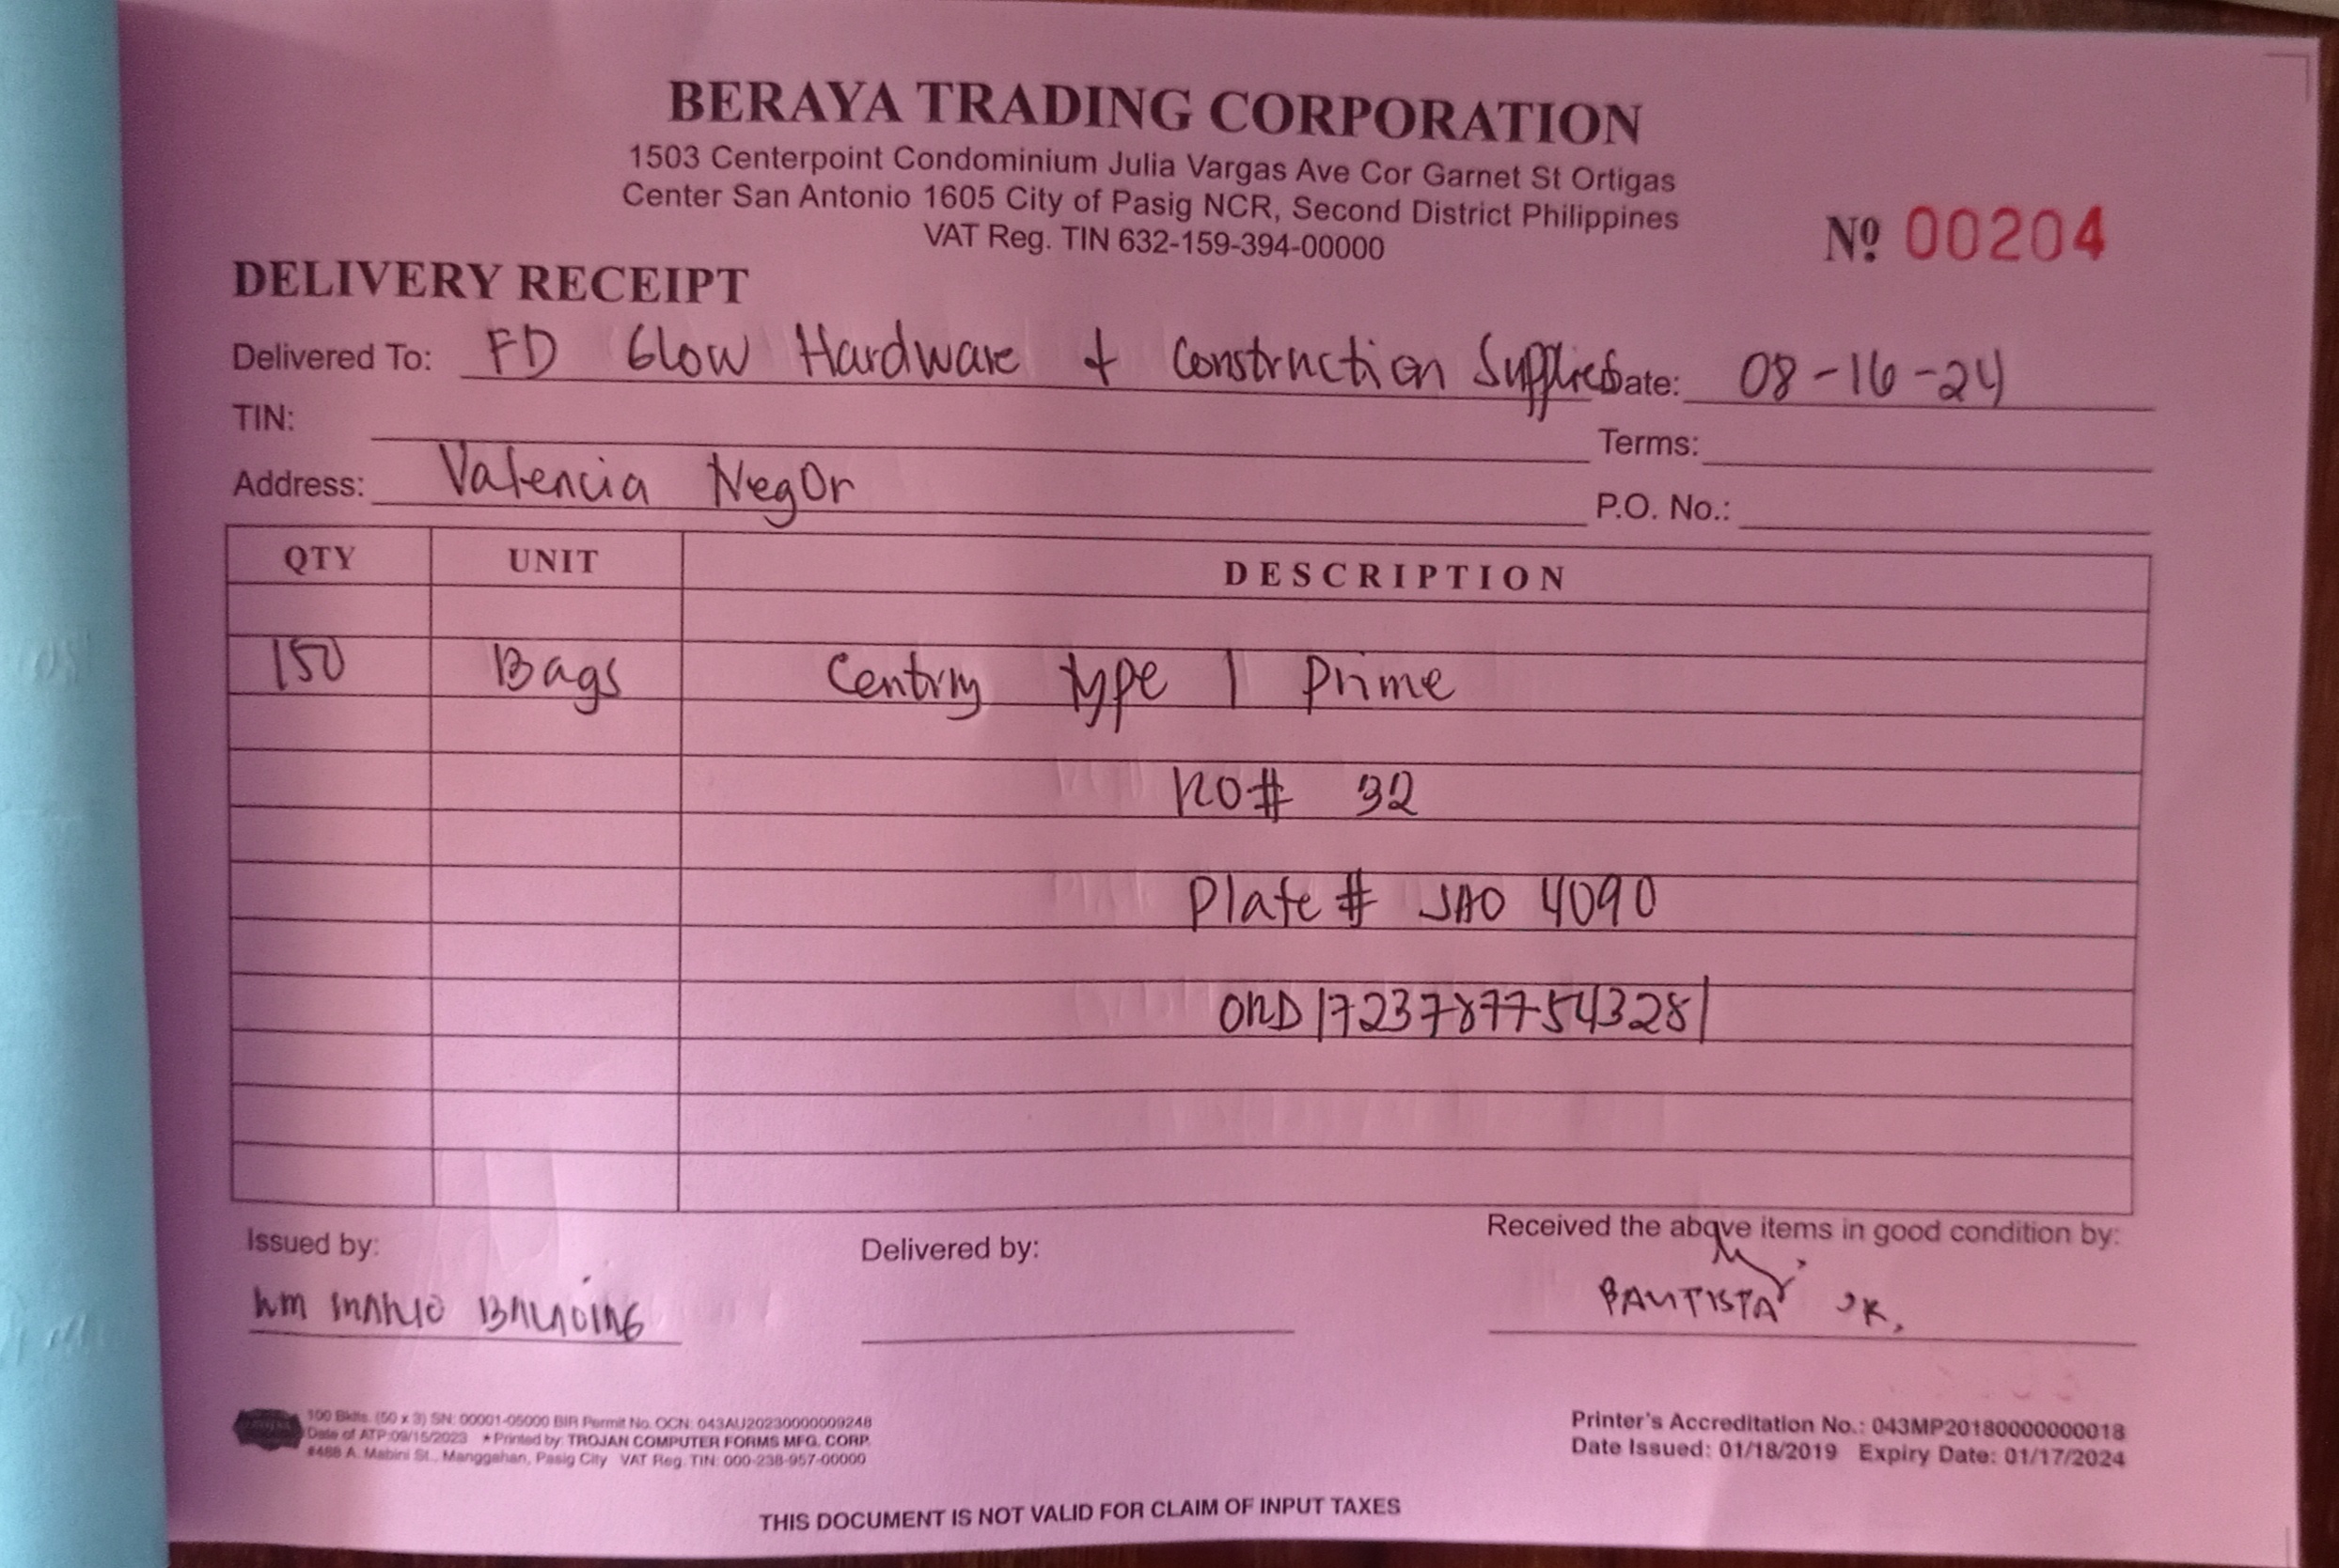 BERAYA TRADING CORPORATION
1503 Centerpoint Condominium Julia Vargas Ave Cor Garnet St Ortigas
Center San Antonio 1605 City of Pasig NCR, Second District Philippines
VAT Reg. TIN 632-159-394-00000
Nº 00204
DELIVERY RECEIPT
Delivered To: FD Glow Hardware & Construction Supplies Date: 08-16-24
TIN:
Terms:
Address: Valencia NegOr
P.O. No.:
QTY UNIT DESCRIPTION
150 Bags Centry type 1 Prime
RO# 32
Plate # JAO 4090
ORD17237877543281
Issued by: Delivered by: Received the above items in good condition by:
BAUTISTA JR.
100 Bklts. (50 x 3) SN: 00001-05000 BIR Permit No. OCN: 043AU20230000009248
Date of ATP:09/15/2023 ★Printed by: TROJAN COMPUTER FORMS MFG. CORP.
#488 A. Mabini St., Manggahan, Pasig City VAT Reg. TIN: 000-238-957-00000
Printer's Accreditation No.: 043MP20180000000018
Date Issued: 01/18/2019 Expiry Date: 01/17/2024
THIS DOCUMENT IS NOT VALID FOR CLAIM OF INPUT TAXES